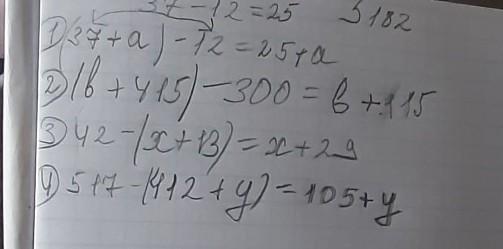 37-12=25 5182
1) (37+a)-12=25+a
2) (b+415)-300=b+115
3) 42-(x+13)=x+29
4) 517-(412+y)=105+y